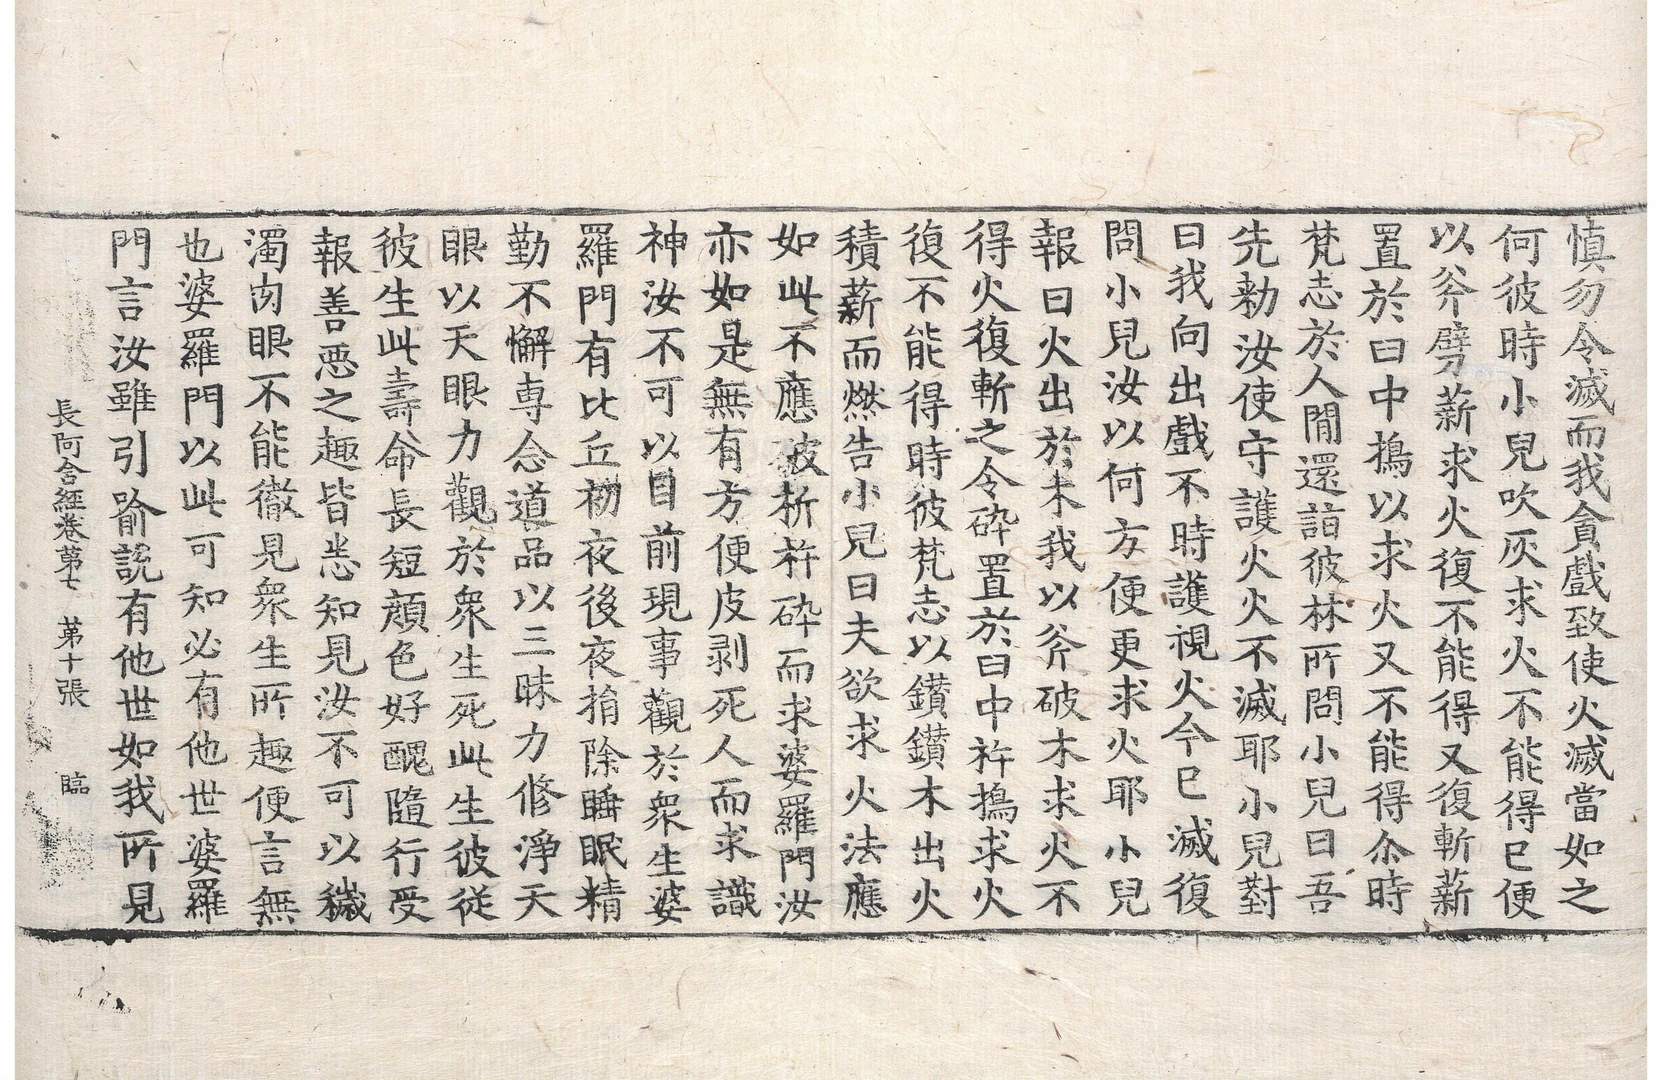 慎勿令滅而我貪戲致使火滅當如之
何彼時小兒吹灰求火不能得已便
以斧劈薪求火復不能得又復斬薪
置於臼中擣以求火又不能得尒時
梵志於人間還詣彼林所問小兒曰吾
先勑汝使守護火火不滅耶小兒對
曰我向出戲不時護視火今已滅復
問小兒汝以何方便更求火耶小兒
報曰火出於木我以斧破木求火不
得火復斬之令碎置於臼中杵擣求火
復不能得時彼梵志以鑽鑽木出火
積薪而燃告小兒曰夫欲求火法應
如此不應破析杵碎而求婆羅門汝
亦如是無有方便皮剥死人而求識
神汝不可以目前現事觀於衆生婆
羅門有比丘初夜後夜捐除睡眠精
勤不懈專念道品以三昧力修淨天
眼以天眼力觀於衆生死此生彼從
彼生此壽命長短顔色好醜隨行受
報善惡之趣皆悉知見汝不可以穢
濁肉眼不能徹見衆生所趣便言無
也婆羅門以此可知必有他世婆羅
門言汝雖引喻說有他世如我所見
長阿含經卷第七 第十張 臨